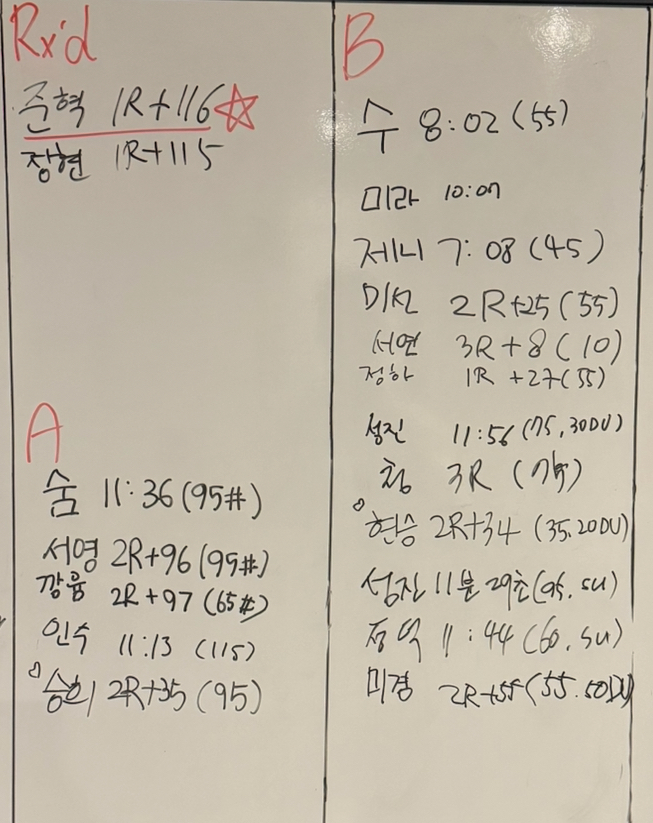 Rx'd
준혁 1R+116
장현 1R+115
A
숨 11:36 (95#)
서영 2R+96 (95#)
깡윰 2R+97 (65#)
인수 11:13 (115)
승희 2R+35 (95)
B
수 8:02 (55)
미라 10:07
제니 7:08 (45)
미선 2R+25 (55)
서연 3R+8 (10)
정하 1R+27 (55)
성진 11:56 (75, 30DU)
침 3R (75)
현승 2R+34 (35. 20DU)
성진 11분 29초 (95. SU)
11:44 (60. SU)
미경 2R+55 (55. 50DU)